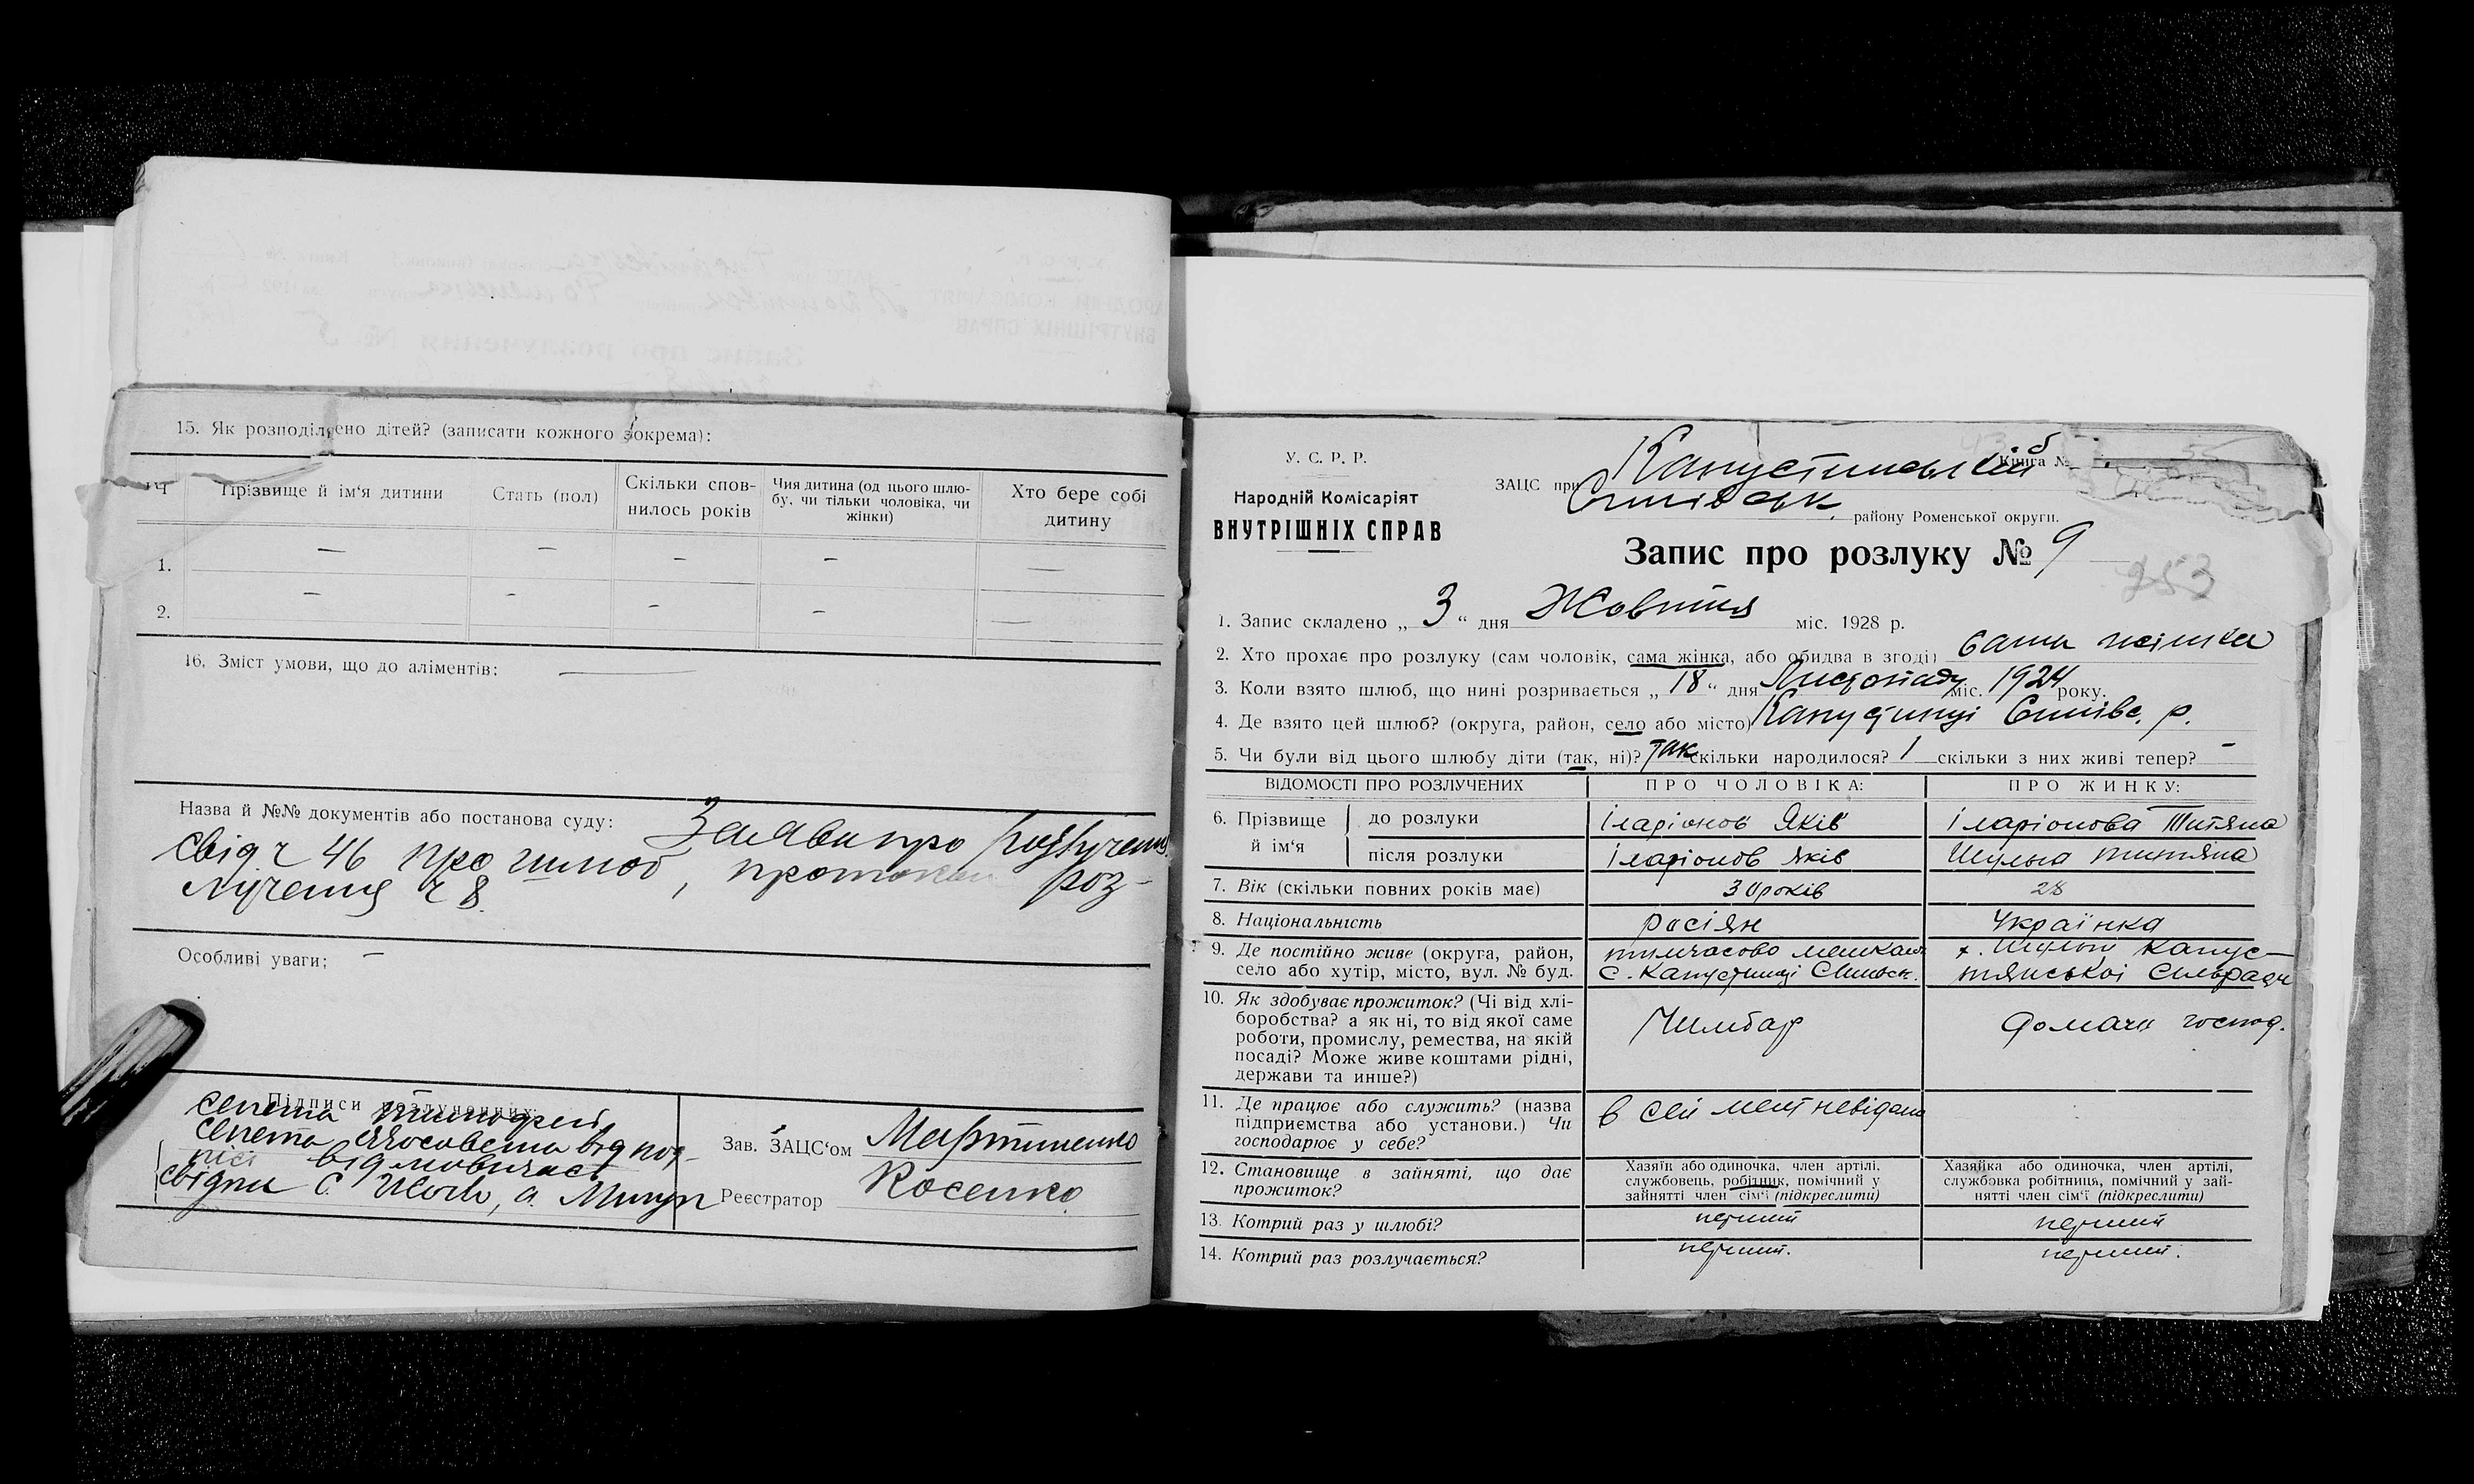 15. Як розподілено дітей? (записати кожного зокрема):
Прізвище й ім‘я дитини
Стать (пол)
Скільки спов-
нилось років
Чия дитина (од цього шлю-
бу, чи тільки чоловіка, чи
жінки)
Хто бере собі
дитину
1. — — — — —
2. — — — — —
16. Зміст умови, що до аліментів: —
Назва й №№ документів або постанова суду: Заяви про
свід ч 46 про шлюб, протокол роз-
лучення ч 8.
Особливі уваги; —
Підписи розлучених:
відмовилась
свідки
Зав. ЗАЦС‘ом Мартиненко
Реєстратор Косенко
У. С. Р. Р.
Народній Комісаріят
ВНУТРІШНІХ СПРАВ
Книга №
ЗАЦС при Капустинській
району Роменської округи.
Запис про розлуку № 9
253
1. Запис складено „ 3 “ дня Жовтня міс. 1928 р.
2. Хто прохає про розлуку (сам чоловік, сама жінка, або обидва в згоді) сама жінка
3. Коли взято шлюб, що нині розривається „ 18 “ дня Листопаду міс. 1924 року.
4. Де взято цей шлюб? (округа, район, село або місто) Капустинці Синівс. р.
5. Чи були від цього шлюбу діти (так, ні)? так скільки народилося? 1 скільки з них живі тепер? -
ВІДОМОСТІ ПРО РОЗЛУЧЕНИХ
ПРО ЧОЛОВІКА:
ПРО ЖИНКУ:
6. Прізвище
й ім‘я
до розлуки Іларіонов Яків Іларіонова Титяна
після розлуки Іларіонов Яків Шульга Титяна
7. Вік (скільки повних років має) 30 років 28
8. Національність росіян Українка
9. Де постійно живе (округа, район,
село або хутір, місто, вул. № буд.
тимчасово мешкає
с. Капустинці Синівск.
х. Шульги Капус-
тянської сильради
10. Як здобуває прожиток? (Чі від хлі-
боробства? а як ні, то від якої саме
роботи, промислу, ремества, на якій
посаді? Може живе коштами рідні,
держави та инше?)
Чимбар
домашн господ.
11. Де працює або служить? (назва
підприємства або установи.) Чи
господарює у себе?
в сей мент невідомо
12. Становище в зайняті, що дає
прожиток?
Хазяїн або одиночка, член артілі,
службовець, робітник, помічний у
зайнятті член сім‘ї (підкреслити)
Хазяйка або одиночка, член артілі,
службовка робітниця, помічний у зай-
нятті член сім‘ї (підкреслити)
13. Котрий раз у шлюбі? перший перший
14. Котрий раз розлучається? перший. перший.